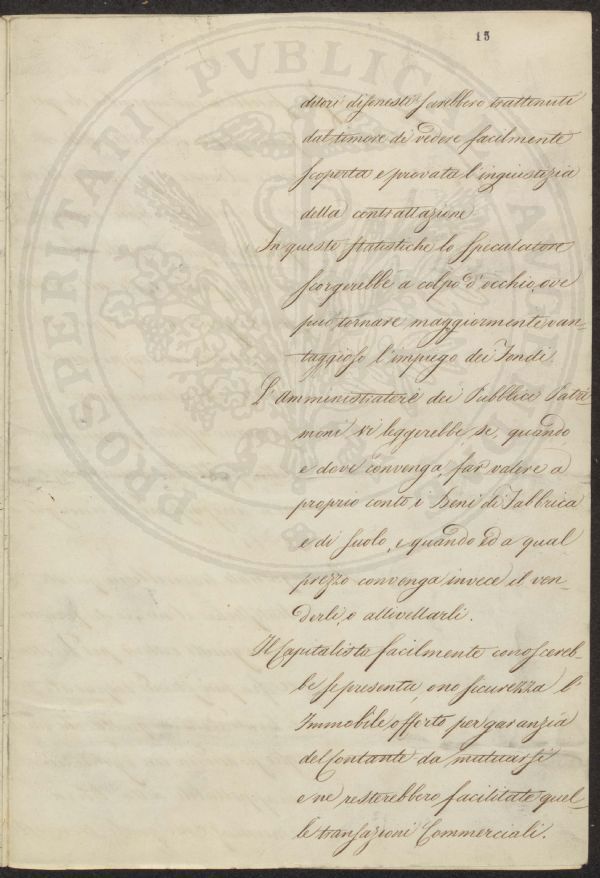 15
PROSPERITATI PVBLICAE AVGENDAE
ditori disonesti sarebbero trattenuti
dal timore di vedere facilmente
scoperta e provata l'ingiustizia
della contrattazione
In queste statistiche lo Speculatore
scorgerebbe a colpo d'occhio, ove
può tornare maggiormente van-
taggioso l'impiego dei Fondi.
L'amministratore dei Pubblici Patri
moni vi leggerebbe se, quando
e dove convenga, far valere a
proprio conto i Beni di Fabbrica
e di suolo, e quando ed a qual
prezzo convenga invece il ven-
derli, o allivellarli.
Il Capitalista facilmente conoscereb-
be se presenta, o no sicurezza l'
Immobile offerto per garanzia
del Contante da mutuarsi
e ne resterebbero facilitate quel-
le transazioni Commerciali.